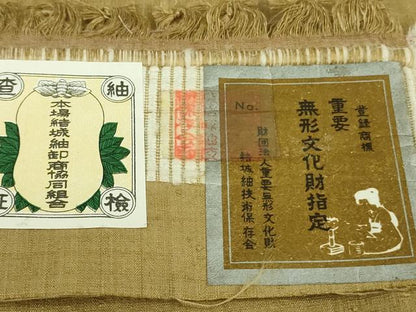 本場結城紬卸商協同組合
紬
査
検
証
登録商標
重要
無形文化財指定
No.
財団法人重要無形文化財
結城紬技術保存会